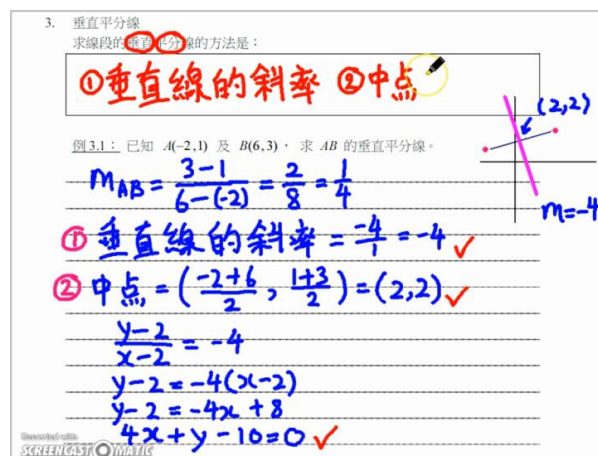 3. 垂直平分線
求線段的垂直平分線的方法是：
①垂直線的斜率 ②中点
(2,2)
例3.1： 已知 A(−2,1) 及 B(6,3)， 求 AB 的垂直平分線。
m=-4
mAB = 3-1/6-(-2) = 2/8 = 1/4
① 垂直線的斜率 = -4/1 = -4 ✓
② 中点 = (-2+6/2, 1+3/2) = (2,2) ✓
y-2/x-2 = -4
y-2 = -4(x-2)
y-2 = -4x + 8
4x + y - 10 = 0 ✓
Recorded with
SCREENCAST-O-MATIC